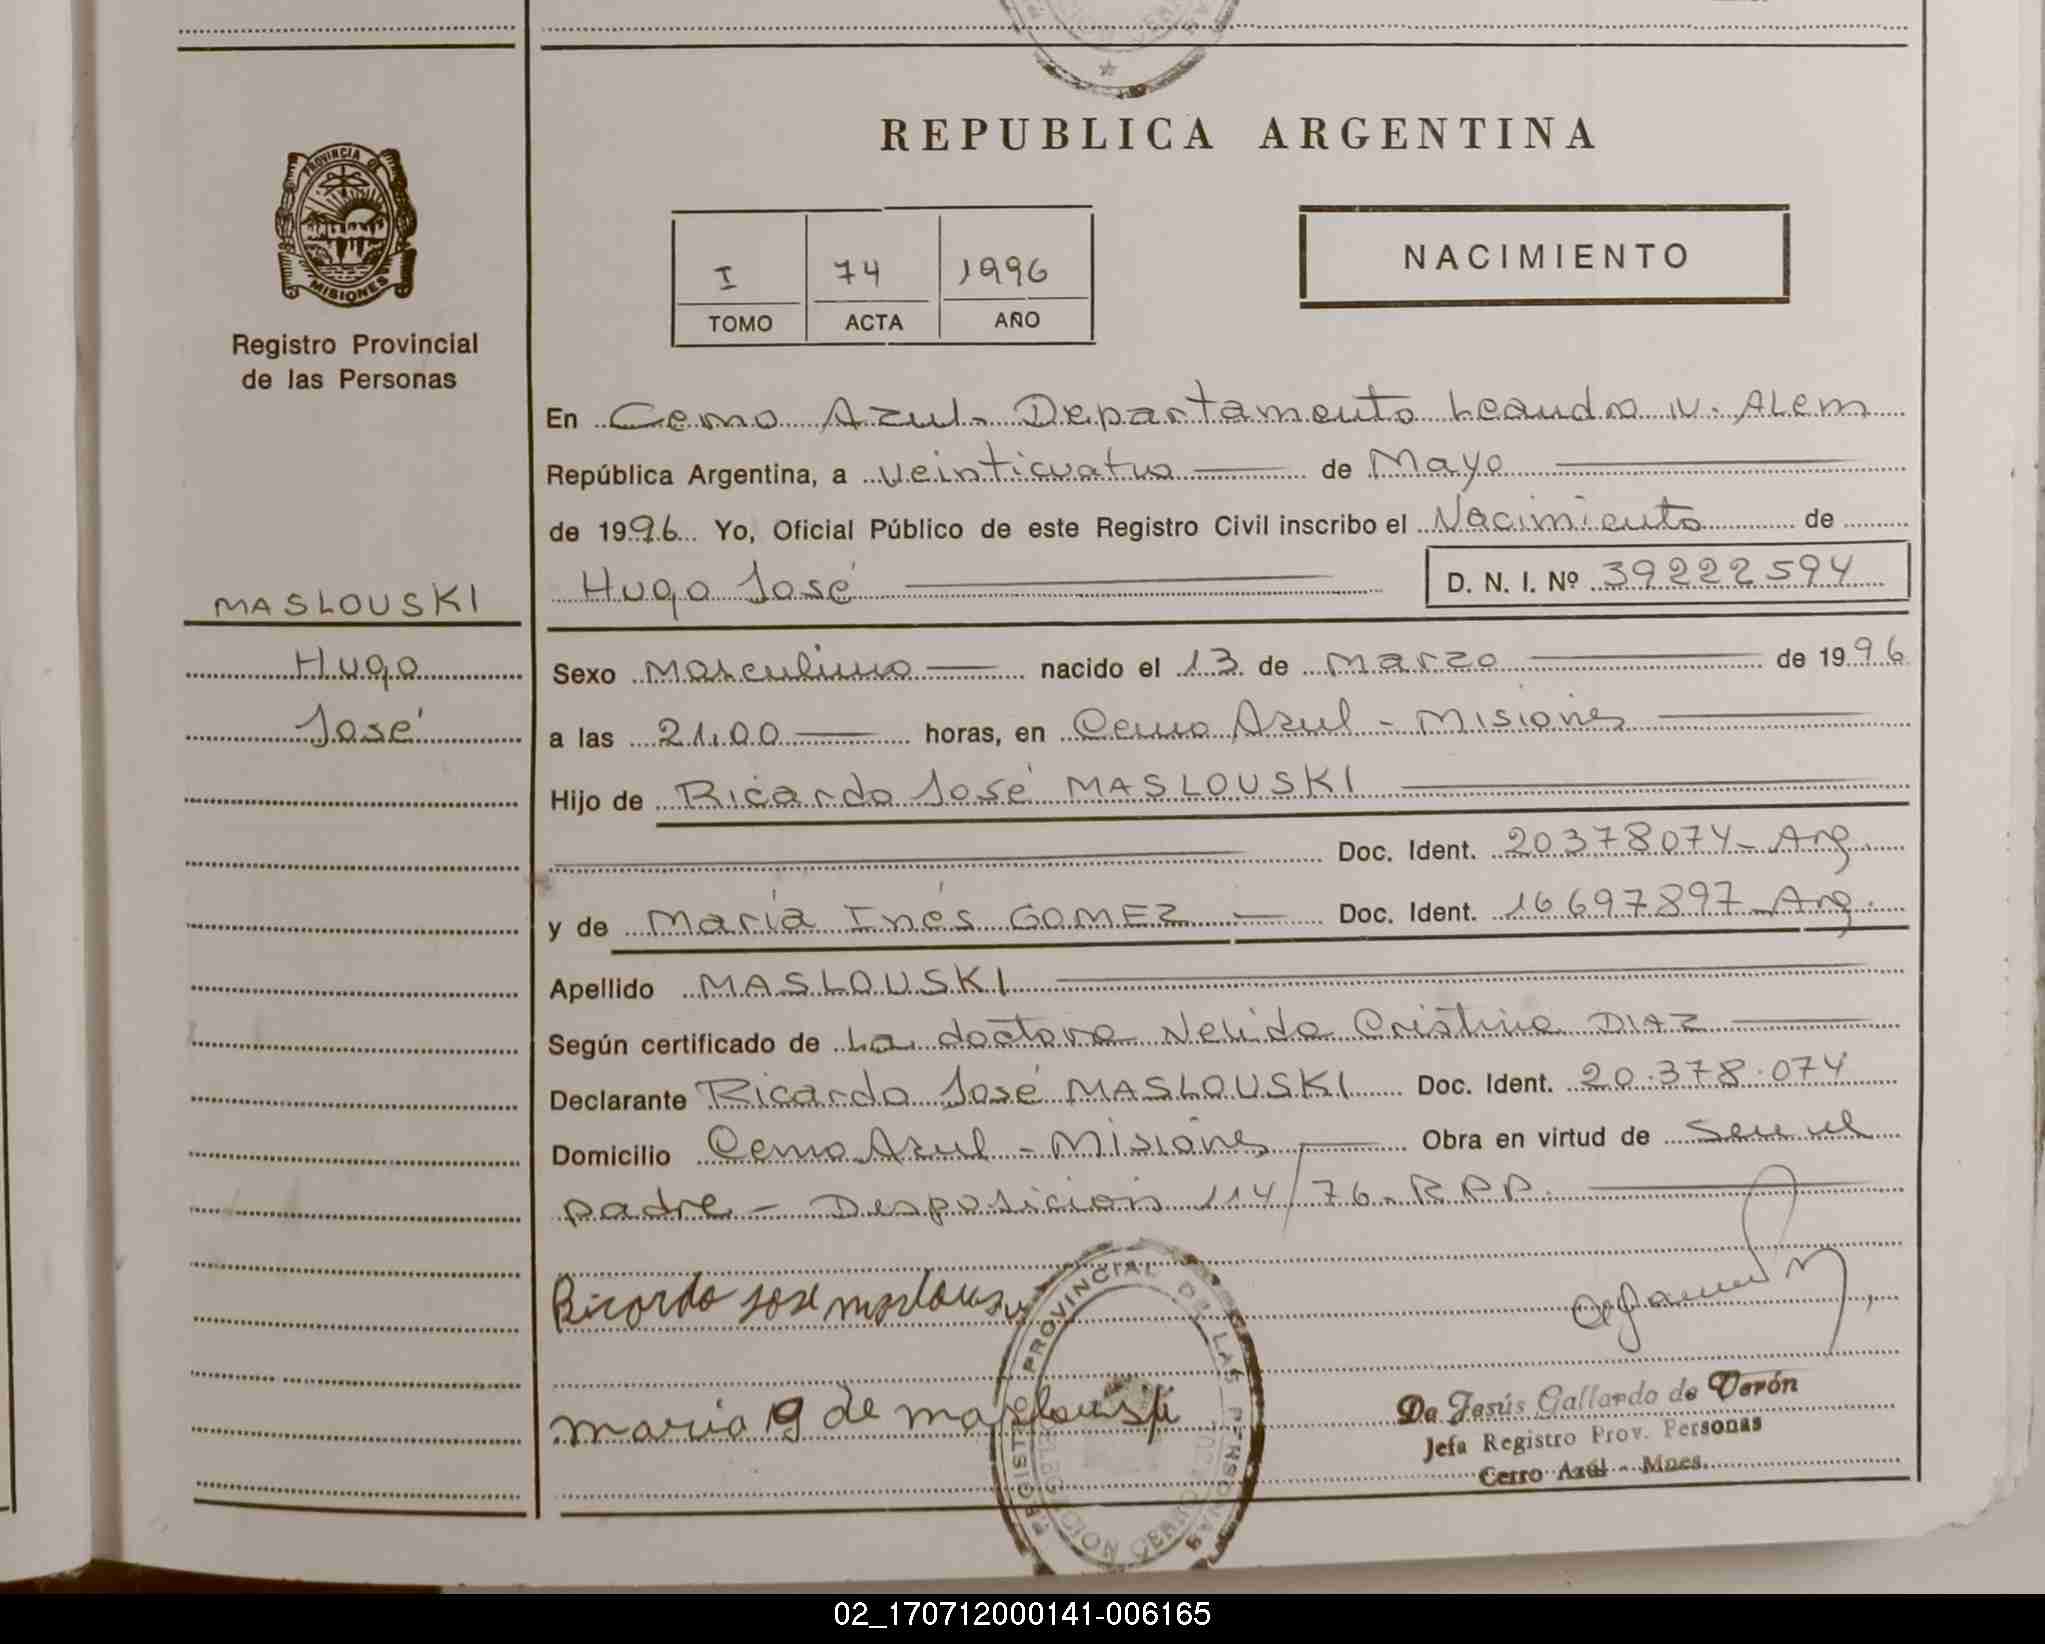 REPUBLICA ARGENTINA
PROVINCIA DE
MISIONES
Registro Provincial
de las Personas
I 74 1996
TOMO ACTA AÑO
NACIMIENTO
En Cerro Azul. Departamento Leandro N. ALem
República Argentina, a veinticuatro de Mayo
de 1996 Yo, Oficial Público de este Registro Civil inscribo el Nacimiento de
Hugo José D. N. I. Nº 39222594
MASLOUSKI
Hugo
José
Sexo Masculino nacido el 13 de marzo de 1996
a las 21,00 horas, en Cerro Azul - Misiones
Hijo de Ricardo José MASLOUSKI
Doc. Ident. 20378074- Arg.
y de María Inés GOMEZ Doc. Ident. 16697897- Arg.
Apellido MASLOUSKI
Según certificado de La doctora Nelida Cristina DIAZ
Declarante Ricardo José MASLOUSKI Doc. Ident. 20.378.074
Domicilio Cerro Azul - Misiones Obra en virtud de ser el
padre - Desposicion 114/76- R.P.P.
Ricardo jose
maria g de maslouski
REGISTRO PROVINCIAL DE LAS PERSONAS
Da Jesús Gallardo de Verón
Jefa Registro Prov. Personas
Cerro Azúl - Mnes.
02_170712000141-006165